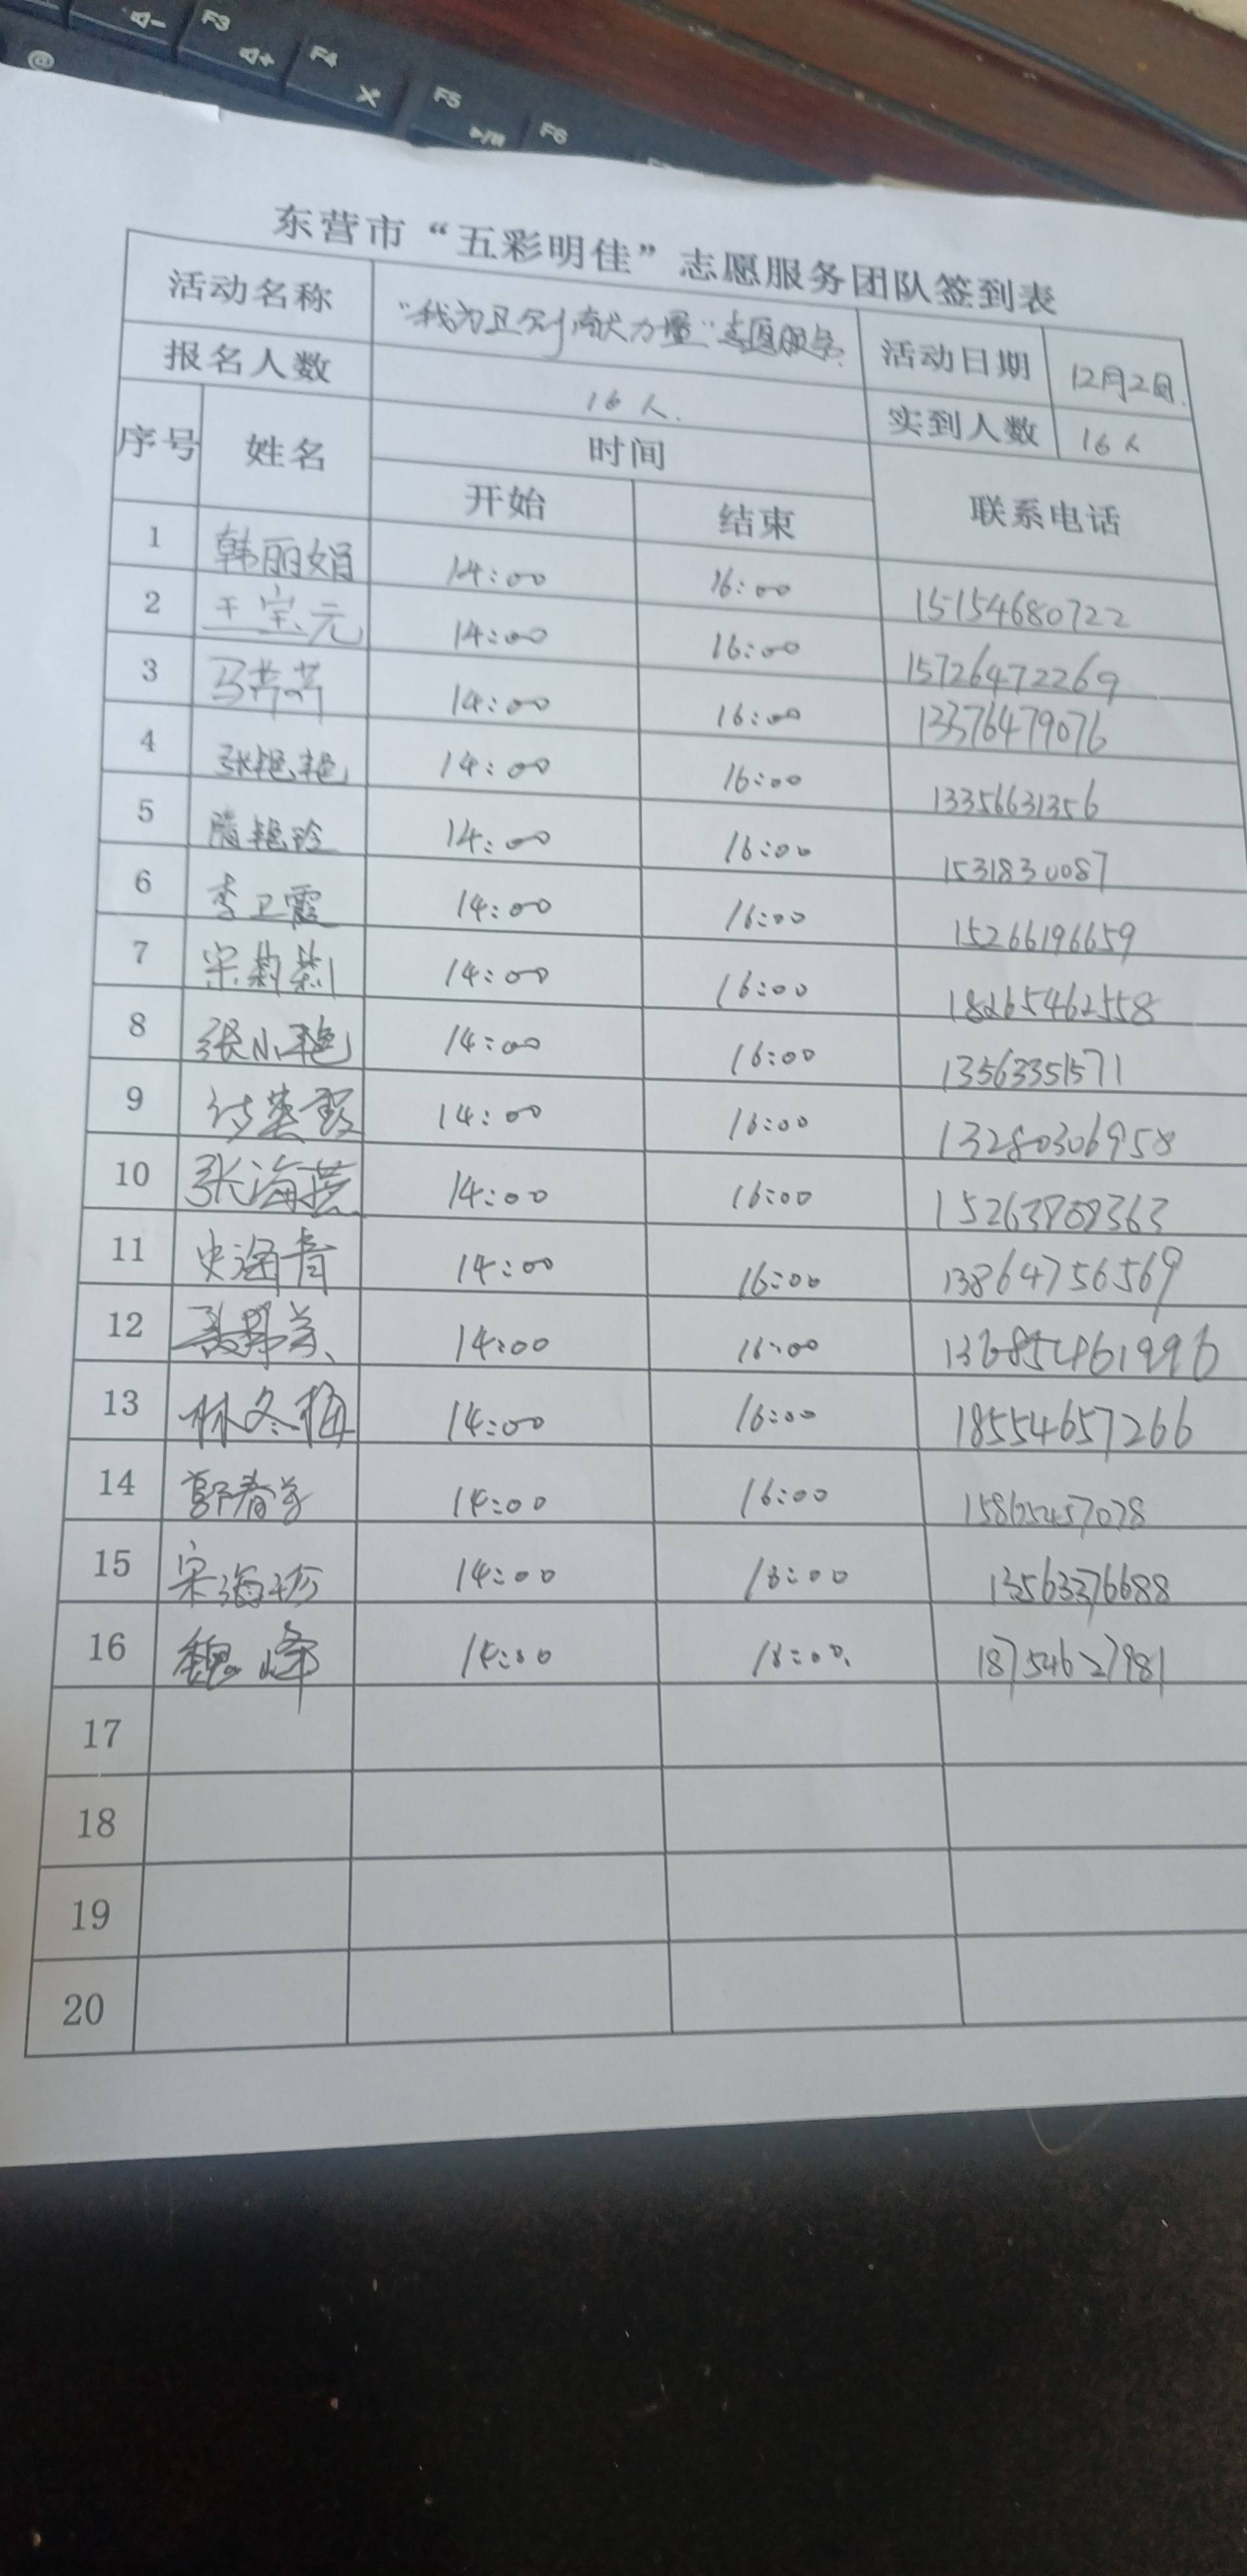 @
F3
F4
F5
F6
东营市“五彩明佳”志愿服务团队签到表
活动名称 “我为卫创献力量”志愿服务. 活动日期 12月2日.
报名人数 16人. 实到人数 16人
序号 姓名 时间 联系电话
开始 结束
1 韩丽娟 14:00 16:00 15154680722
2 王宝元 14:00 16:00 15726472269
3 马芳芳 14:00 16:00 13376479076
4 张艳艳 14:00 16:00 13356631356
5 隋艳玲 14:00 16:00 1531830087
6 李卫霞 14:00 16:00 15266196659
7 宋莉莉 14:00 16:00 18265462558
8 张小艳 14:00 16:00 13563351571
9 14:00 16:00 13280306958
10 张海燕 14:00 16:00 15263808363
11 史海青 14:00 16:00 13864756569
12 14:00 16:00
13 林冬梅 14:00 16:00 18554657266
14 郭春芳 14:00 16:00
15 宋海珍 14:00 16:00 13563376688
16 魏峰 14:00 16:00. 18754627981
17
18
19
20